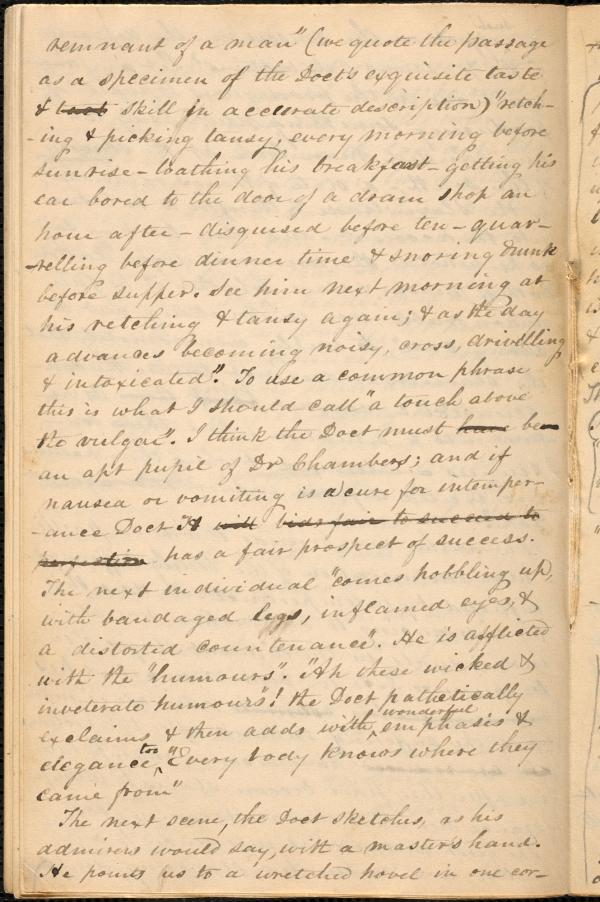 remnant of a man" (we quote the passage
as a specimen of the Doct's exquisite taste
& taot skill in accurate description) "retch-
-ing & picking tansy, every morning before
sunrise - loathing his breakfast - getting his
ear bored to the door of a dram shop an
hour after - disguised before ten - quar-
-relling before dinner time & snoring drunk
before supper. See him next morning at
his retching & tansy again; & as the day
advances becoming noisy, cross, drivelling
& intoxicated". To use a common phrase
this is what I should call "a touch above
the vulgar". I think the Doct must have be
an apt pupil of Dr Chambers; and if
nausea or vomiting is a cure for intemper-
-ance Doct H will bids fair to succeed to
perfection has a fair prospect of success.
The next individual "comes hobbling up,
with bandaged legs, inflamed eyes, &
a distorted countenance". He is afflicted
with the "humours". "Ah these wicked &
inveterate humours"! the Doct pathetically
exclaims & then adds with wonderful emphasis &
elegance too, "Every body knows where they
came from"
The next scene, the Doct sketches, as his
admirers would say, with a master's hand.
He points us to a wretched hovel in one cor-